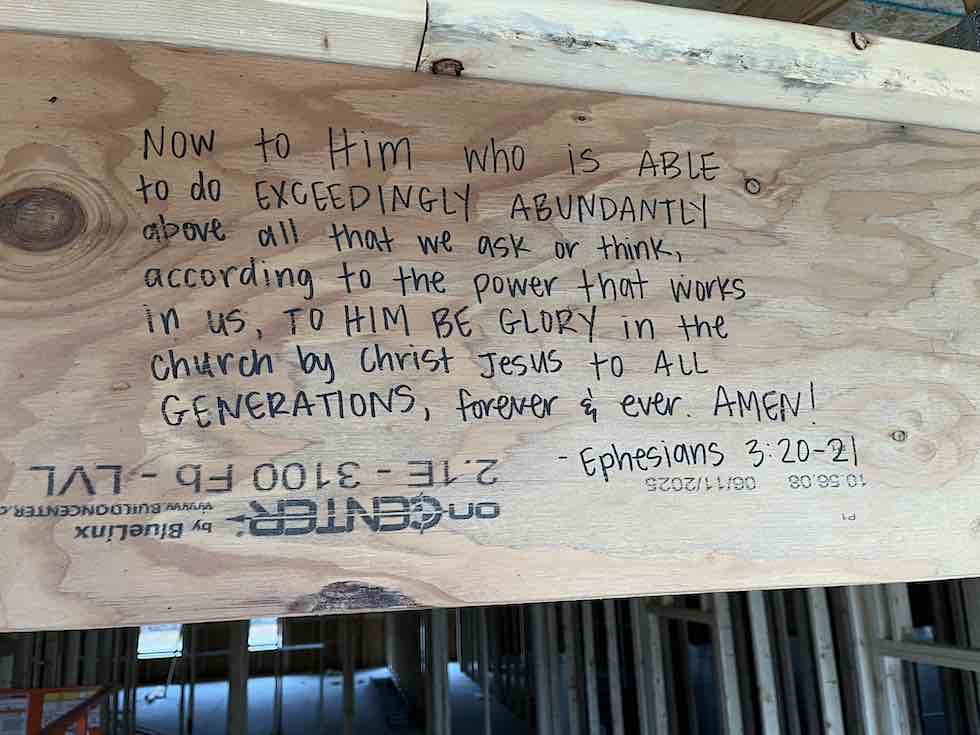 Now to Him who is ABLE
to do EXCEEDINGLY ABUNDANTLY
above all that we ask or think,
according to the power that works
in us, TO HIM BE GLORY in the
church by Christ Jesus to ALL
GENERATIONS, forever & ever. AMEN!
- Ephesians 3:20-21
2.1E - 3100 Fb - LVL
onCENTER
by BlueLinx
www.BUILDONCENTER.
10.56.08 06/11/2025
P1